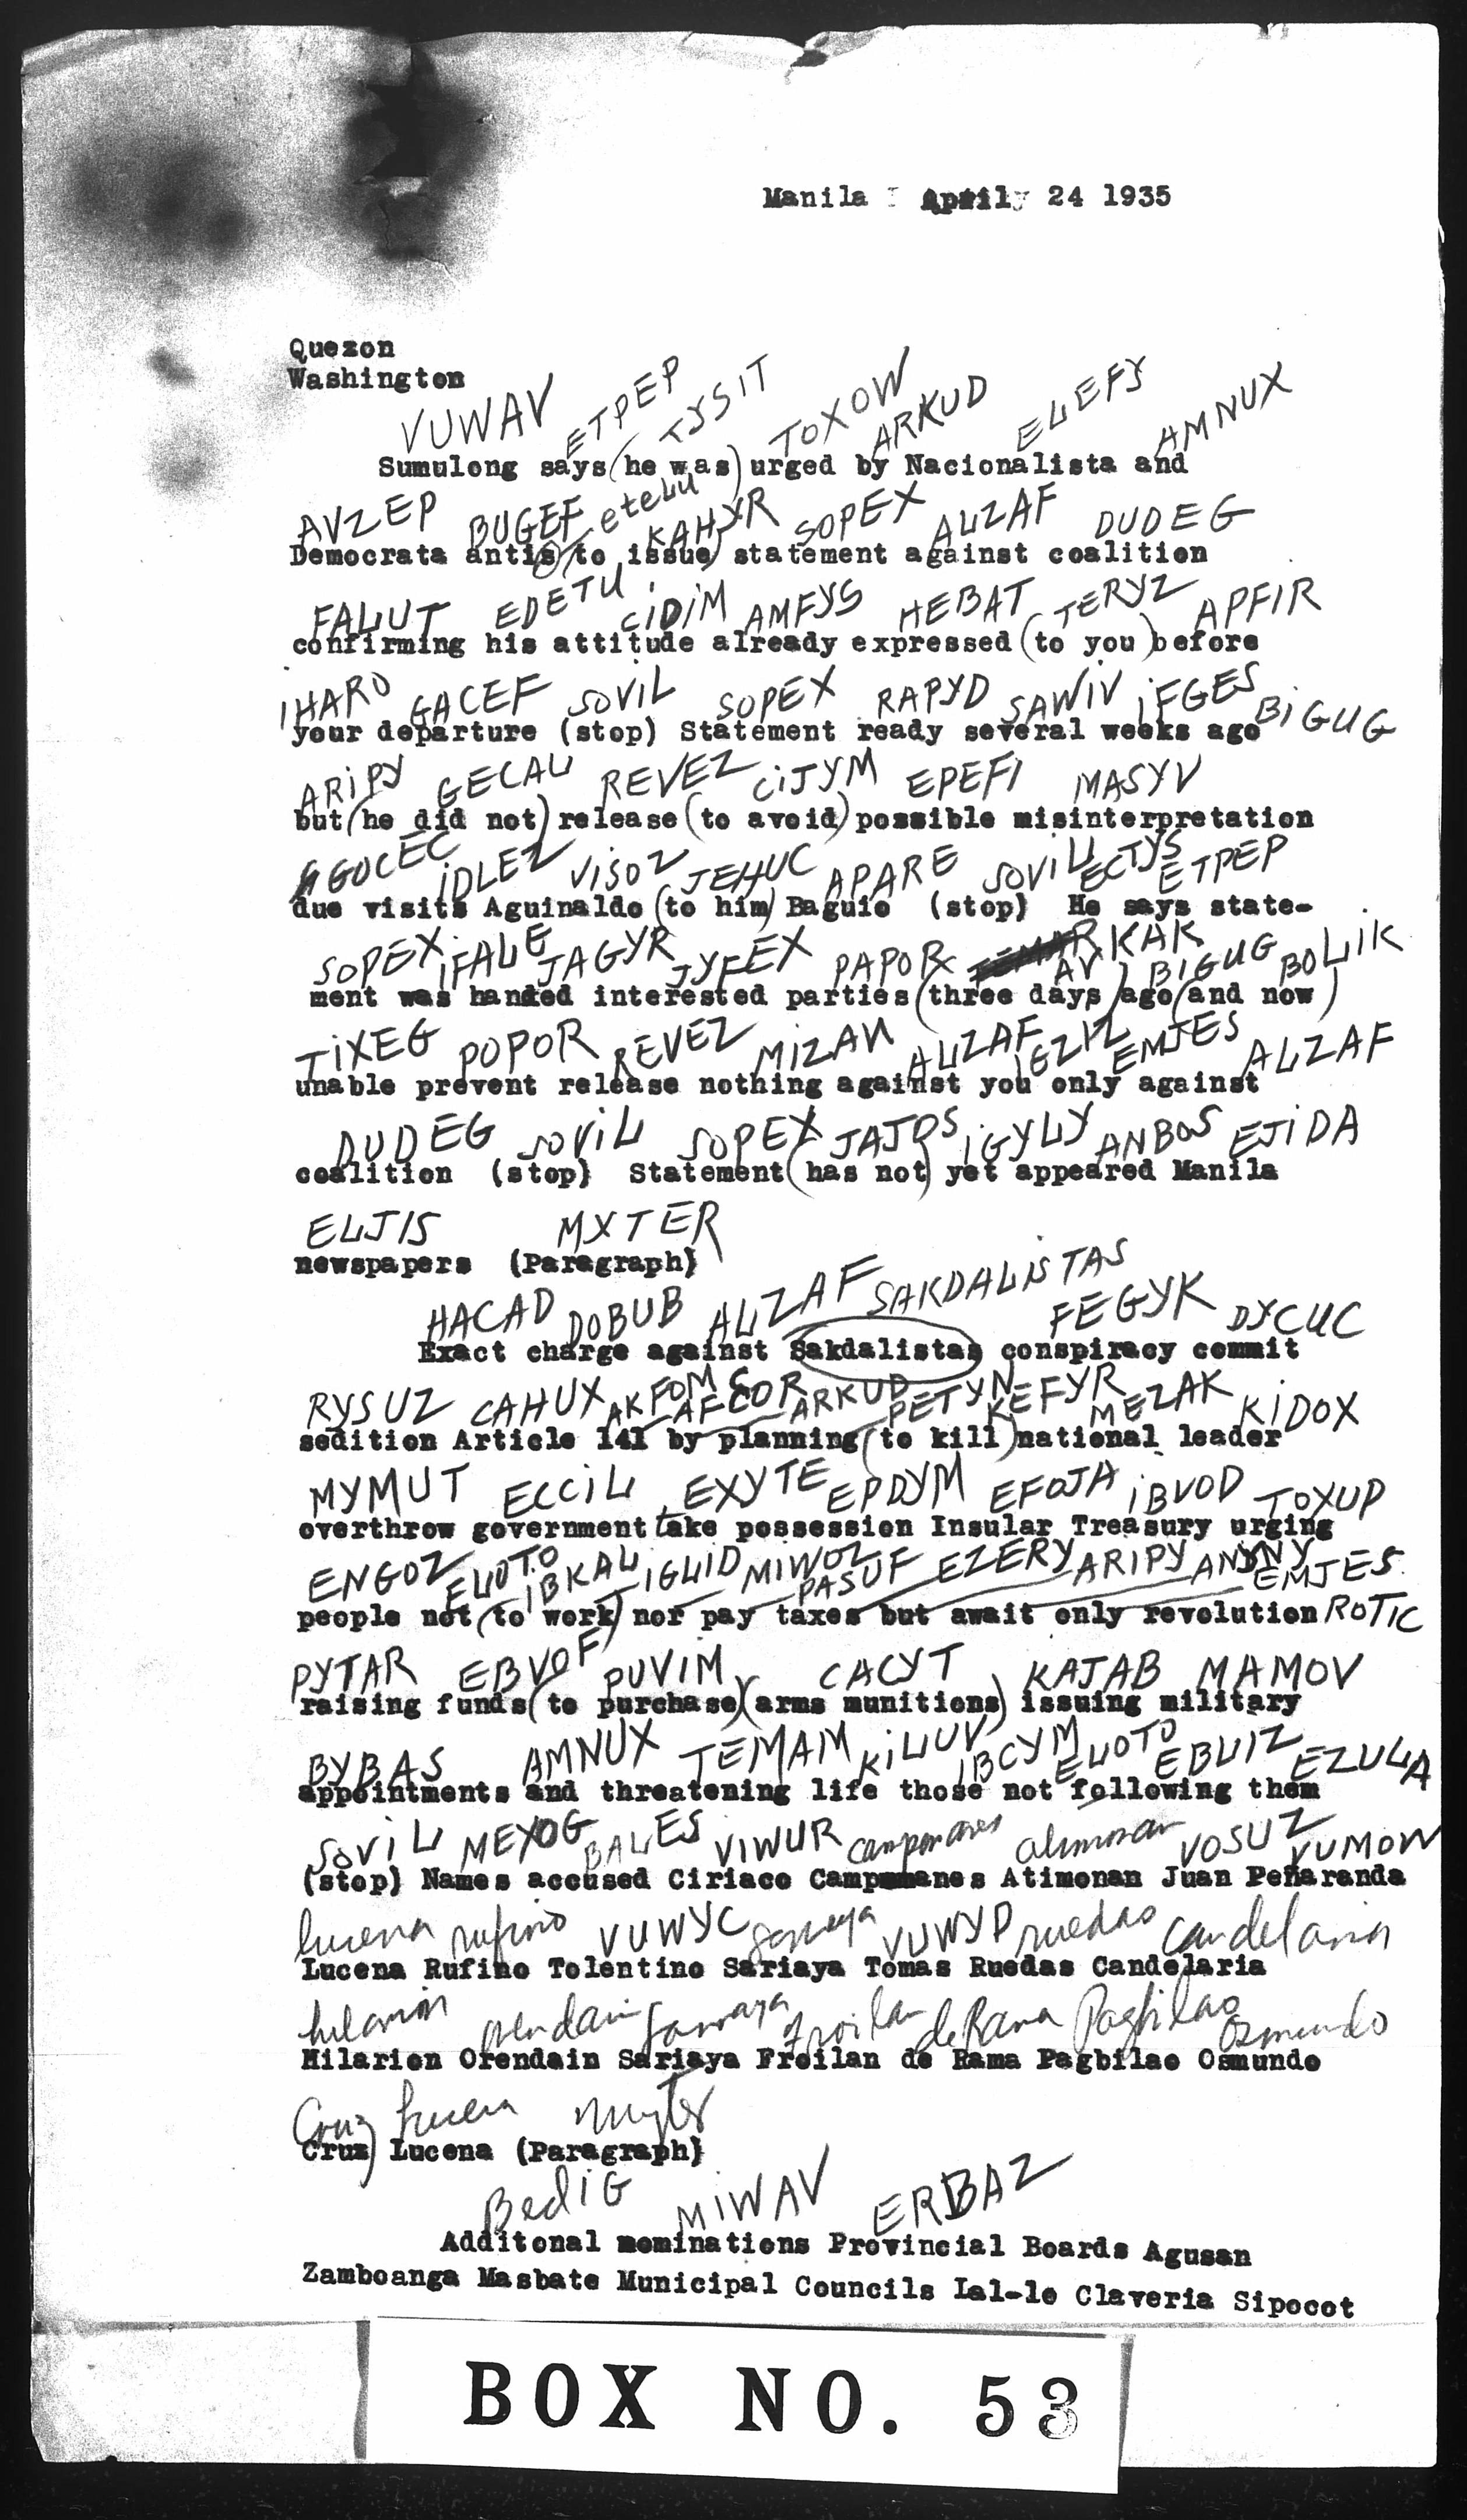 Manila April 24 1935
Quezon
Washington
VUWAV ETPEP TYSIT TOXOW ARKUD ELEFY AMNUX
Sumulong says (he was) urged by Nacionalista and
AVZEP BUGEF etelu KAHYR SOPEX ALZAF DUDEG
Democrata antis (to issue) statement against coalition
FALUT EDETU CIDIM AMFYS HEBAT TERYZ APFIR
confirming his attitude already expressed (to you) before
IHARO GACEF SOVIL SOPEX RAPYD SAWIV IFGES BIGUG
your departure (stop) Statement ready several weeks ago
ARIPY GECAL REVEZ CIJYM EPEFI MASYV
but (he did not) release (to avoid) possible misinterpretation
GOCEC IDLEZ VISOZ JEHUC APARE SOVIL ECTYS ETPEP
due visits Aguinaldo (to him) Baguio (stop) He says state-
SOPEX IFALE JAGYR JYFEX PAPOR KAKAV BIGUG BOLIK
ment was handed interested parties (three days) ago (and now)
TIXEG POPOR REVEZ MIZAN ALZAF IGZIZ EMJES ALZAF
unable prevent release nothing against you only against
DUDEG SOVIL SOPEX JAJOS IGYLY ANBOS EJIDA
coalition (stop) Statement (has not) yet appeared Manila
ELJIS MXTER
newspapers (Paragraph)
HACAD DOBUB ALZAF SAKDALISTAS FEGYK DYCUC
Exact charge against Sakdalistas conspiracy commit
RYSUZ CAHUX AKFOM AFCOR ARKUD PETYN KEFYR MEZAK KIDOX
sedition Article 141 by planning (to kill) national leader
MYMUT ECCIL EXYTE EPDYM EFOJA IBVOD TOXUP
overthrow government take possession Insular Treasury urging
ENGOZ ELOTO IBKAL IGLID MIWOZ PASUF EZERY ARIPY ANYNY EMJES
people not (to work) nor pay taxes but await only revolution ROTIC
PYTAR EBVOF PUVIM CACYT KAJAB MAMOV
raising funds (to purchase) (arms munitions) issuing military
BYBAS AMNUX TEMAM KILUV IBCYM ELOTO EBLIZ EZULA
appointments and threatening life those not following them
SOVIL MEYOG BALES VIWUR campomanes atimonan VOSUZ VUMOW
(stop) Names accused Ciriaco Campomanes Atimonan Juan Peñaranda
lucena rufino VUWYC sariaya VUWYD ruedas candelaria
Lucena Rufino Tolentino Sariaya Tomas Ruedas Candelaria
hilarion orendain sariaya froilan deRama Pagbilao Osmundo
Hilarion Orendain Sariaya Froilan de Rama Pagbilao Osmundo
Cruz Lucena
Cruz) Lucena (Paragraph)
BedIG MIWAV ERBAZ
Additonal nominations Provincial Boards Agusan
Zamboanga Masbate Municipal Councils Lal-lo Claveria Sipocot
BOX NO. 53